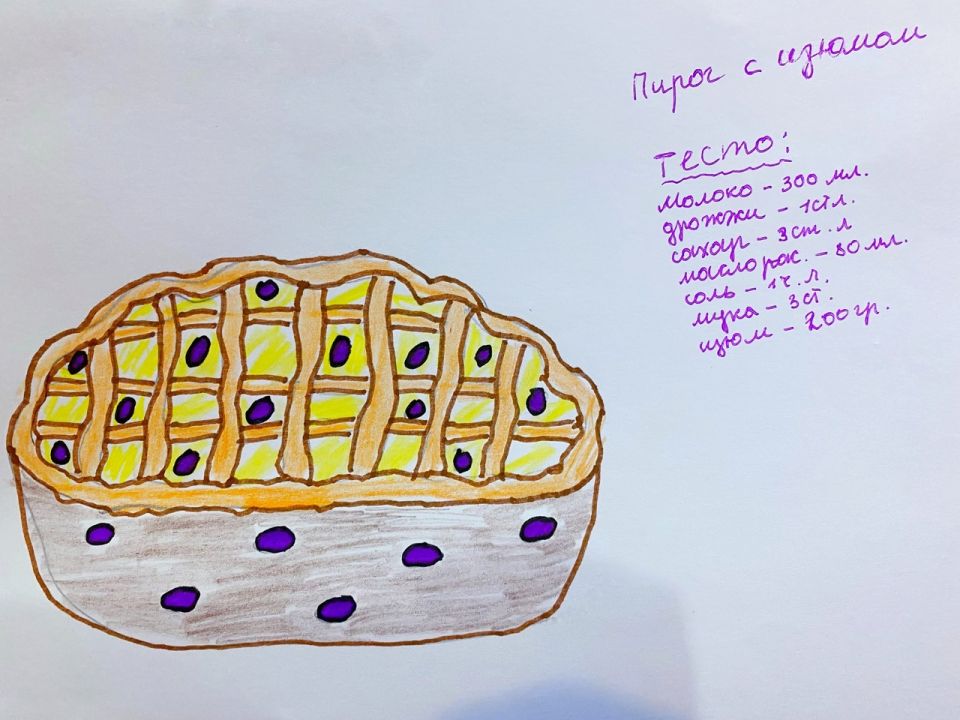 Пирог с изюмом
Тесто:
молоко - 300 мл.
дрожжи - 1стл.
сахар - 3ст. л
масло рас. - 80 мл.
соль - 1ч. л.
мука - 3ст.
изюм - 200гр.